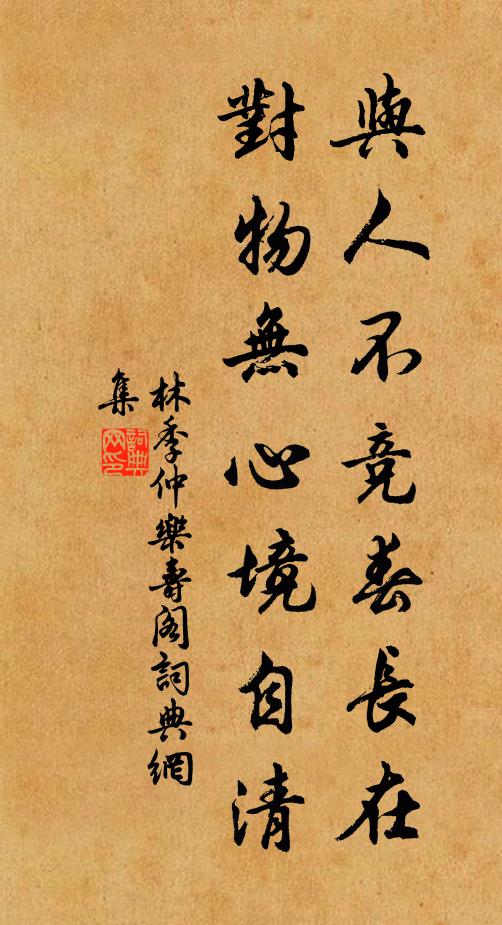 與人不競春長在
對物無心境自清
林季仲樂壽閣詞典網
集
詞典
网印